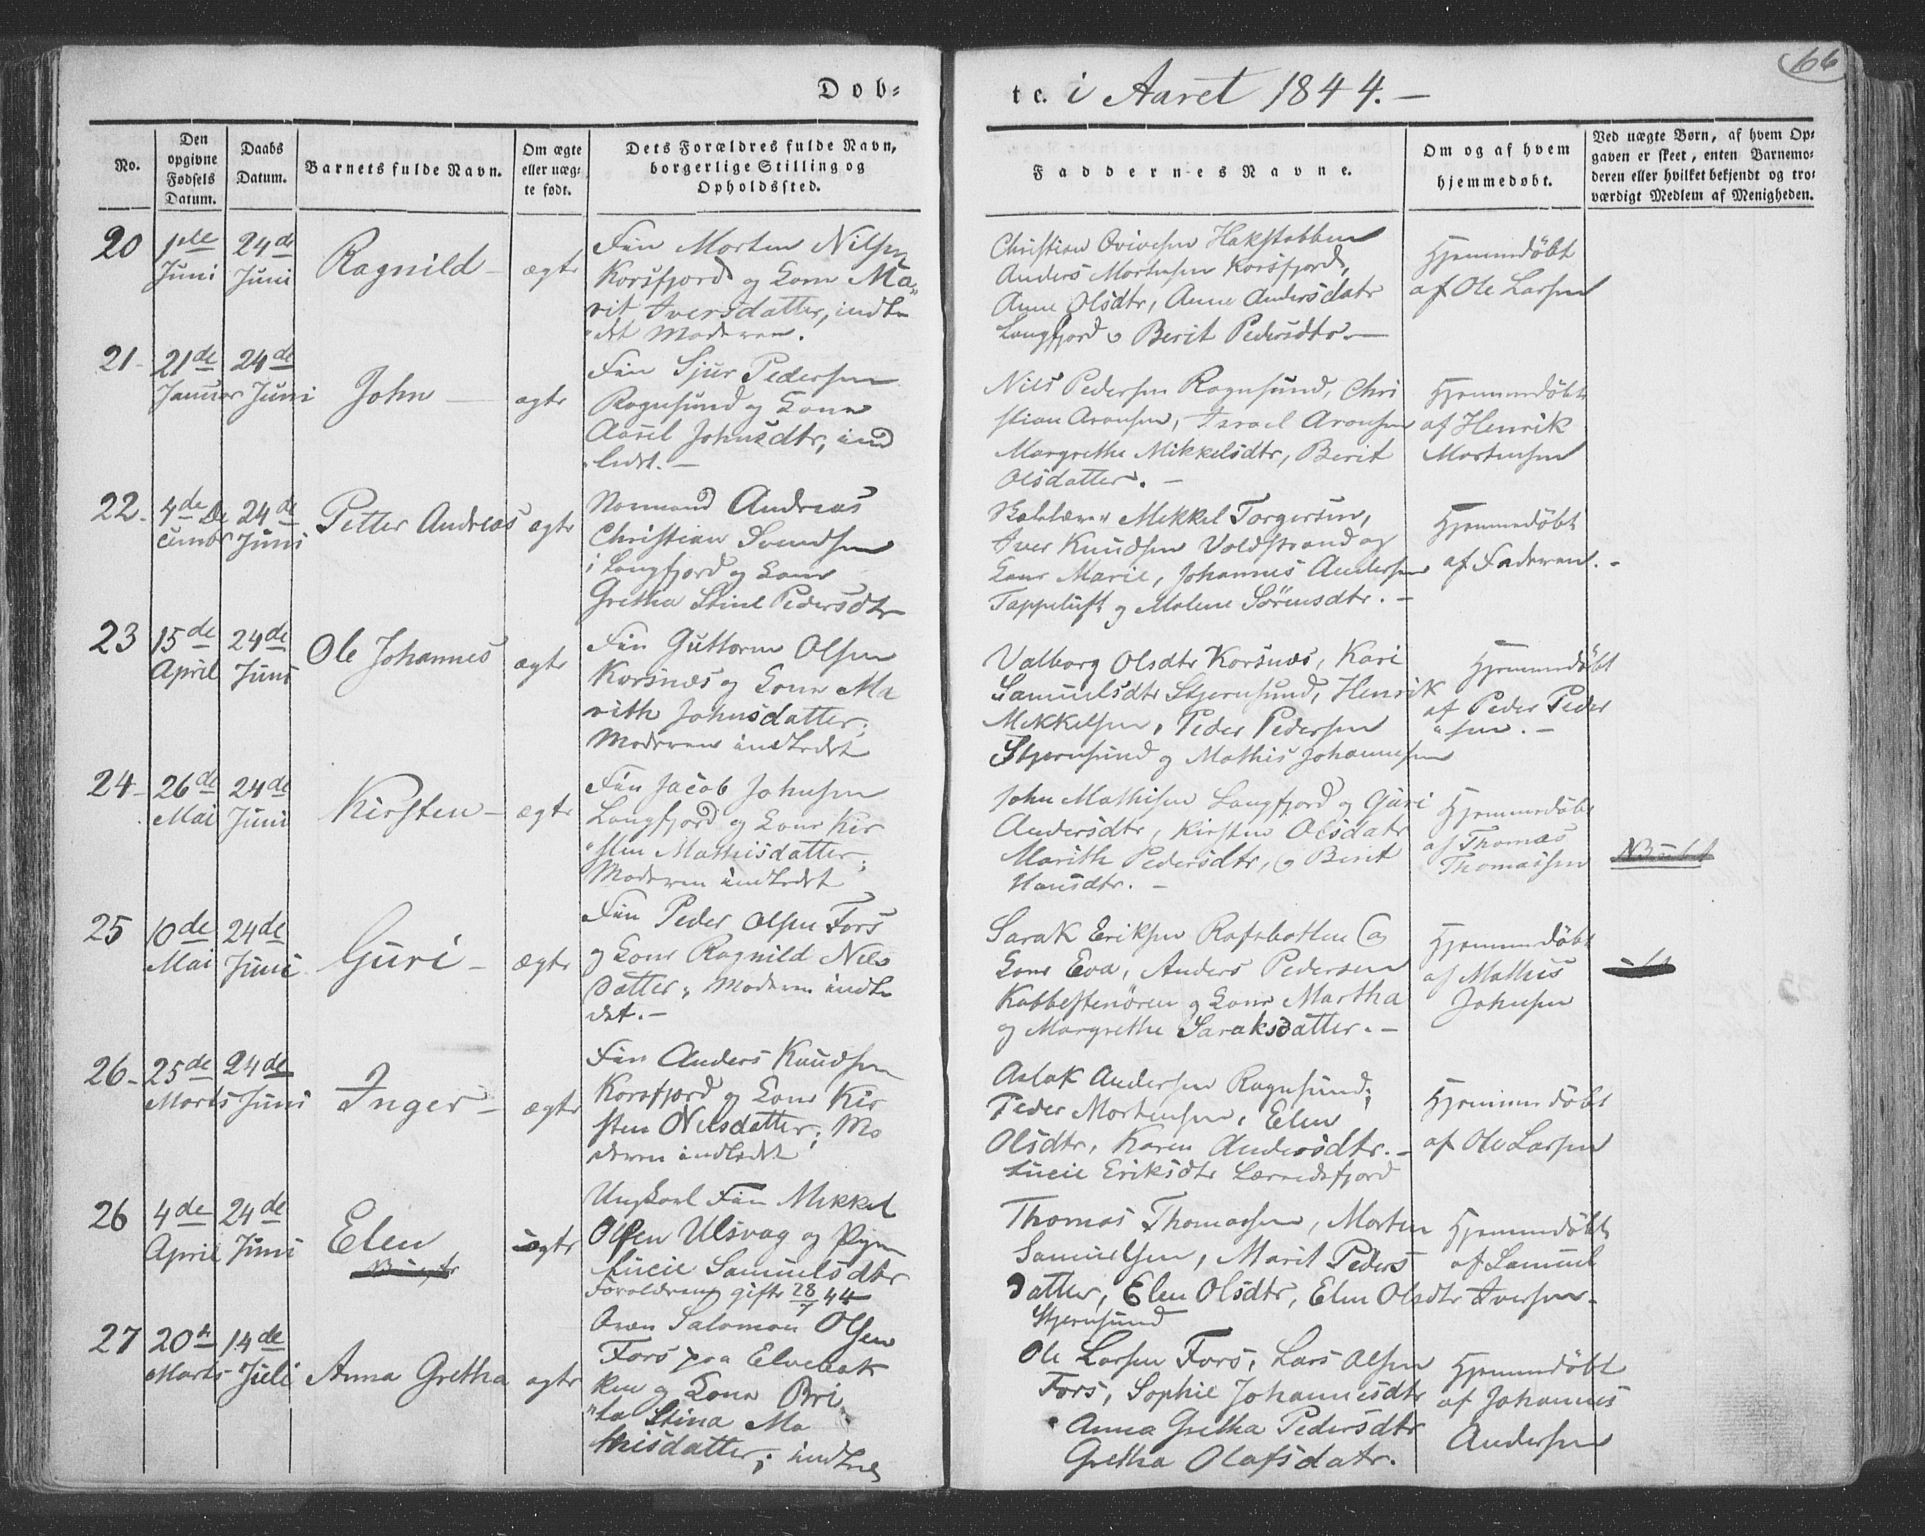 Døb=
te. i Aaret 1844. —
66
No.
Den opgivne Fødsels Datum.
Daabs Datum.
Barnets fulde Navn.
Om ægte eller uæg-te født.
Dets Forældres fulde Navn, borgerlige Stilling og Opholdssted.
Faddernes Navne.
Om og af hvem hjemmedøbt.
Ved uægte Børn, af hvem Op-gaven er skeet, enten Barnemo-deren eller hvilket bekjendt og tro-værdigt Medlem af Menigheden.
20
1ste Juni
24de Juni
Ragnild —
ægte
Fin Morten Nilsen
Korsfjord og Kone Ma-
rit Iversdatter, indle
det Moderen.
Christian Hakstabben
Anders Mortensen Korsfjord,
Anne Olsdtr, Anne Andersdatr
Langfjord o Berit Pedersdtr. —
Hjemmedøbt
af Ole Larsen
21 -
21de Januar
24de Juni
John —
ægte
Fin Sjur Pedersen
Rognsund og Kone
Johnsdtr, ind
ledt. —
Nils Pedersen Rognsund, Chri
stian Aronsen, Israel Aronsen
Margrethe Mikkelsdtr, Berit
Olsdatter. —
Hjemmedøbt
af Henrik
Mortensen
22 -
4de De
cembr
24de Juni
Petter Andreas
ægte
Normand Andreas
Christian Svendsen
i Langfjord og Kone
Gretha Stine Pedersdtr
Mikkel Torgersen,
Iver Knudsen Voldstrand og
Kone Marie, Johannes Andersen
Tappeluft og Malene Sørensdtr. —
Hjemmedøbt
af Faderen. -
23
15de April
24de Juni
Ole Johannes
ægte
Fin Guttorm Olsen
Korsnæs og Kone Ma
rith Johnsdatter,
Moderen indledet
Valborg Olsdtr Korsnæs, Kari
Samuelsdtr Stjernsund, Henrik
Mikkelsen, Peder Pedersen
Stjernsund og Mathis Johannesen
Hjemmedøbt
af Peder Peder
"sen. —
24 -
26de Mai
24de Juni
Kirsten —
ægte
Fin Jacob Johnsen
Langfjord og Kone Kir
"sten Mathisdatter;
Moderen indledet
John Mathisen Langfjord og Guri
Andersdtr, Kirsten Olsdatr
Marith Pedersdtr, o Berit
Hansdtr. —
Hjemmedøbt
af Thomas
Thomassen
25
10de Mai
24de Juni
Guri —
ægte
Fin Peder Olsen Fors
og Kone Ragnild Nils
datter, Moderen indle
det. —
Sarak Eriksen Rafsbotten og
Kone Eva, Anders Pedersen
Kabbestenøren og Kone Martha
og Margrethe Saraksdatter. —
Hjemmedøbt
af Mathis
Johnsen
26 -
25de Marts
24de Juni
Inger —
ægte
Fin Anders Knudsen
Korsfjord og Kone Kir
sten Nilsdatter; Mo
deren indledet
Aslak Andersen Rognsund;
Peder Mortensen, Elen
Olsdtr, Karen Andersdtr. —
Lucie Eriksdtr Lærredsfjord
Hjemmedøbt
af Ole Larsen
26
4de April
24de Juni
Elen
uægte
Ungkarl Fin Mikkel
Olsen Ulsvag og Pigen
Lucie Samuelsdtr
Forældrene gifte 28/7 44
Thomas Thomassen, Morten
Samuelsen, Marit Peders
datter, Elen Olsdtr, Elen Olsdtr
Stjernsund
Hjemmedøbt
af Samuel
Iversen -
27
20de Marts
14de Juli
Anna Gretha
ægte
Qvæn Salomon Olsen
Fors paa Elvebak
ken og Kone Bri
"ta Stina Ma
thisdatter; indledt
Ole Larsen Fors, Lars Olsen
Fors, Sophie Johannesdtr
Anna Gretha Pedersdtr
Gretha Olafsdatr.
Hjemmedøbt
af Johannes
Andersen